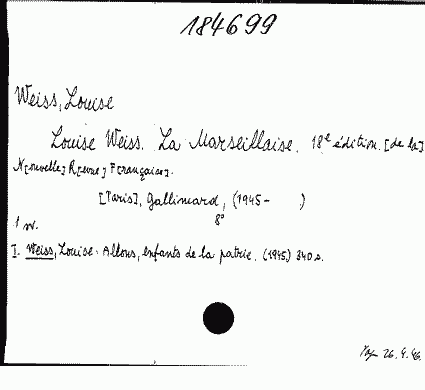 184699
Weiss, Louise
Louise Weiss. La Marseillaise. 18e édition. [de la]
N[ouvelle] R[evue] F[rançaise].
[Paris], Gallimard, (1945- )
8°
1 w.
I. Weiss, Louise: Allons, enfants de la patrie. (1945.) 340 s.
26.4.46.